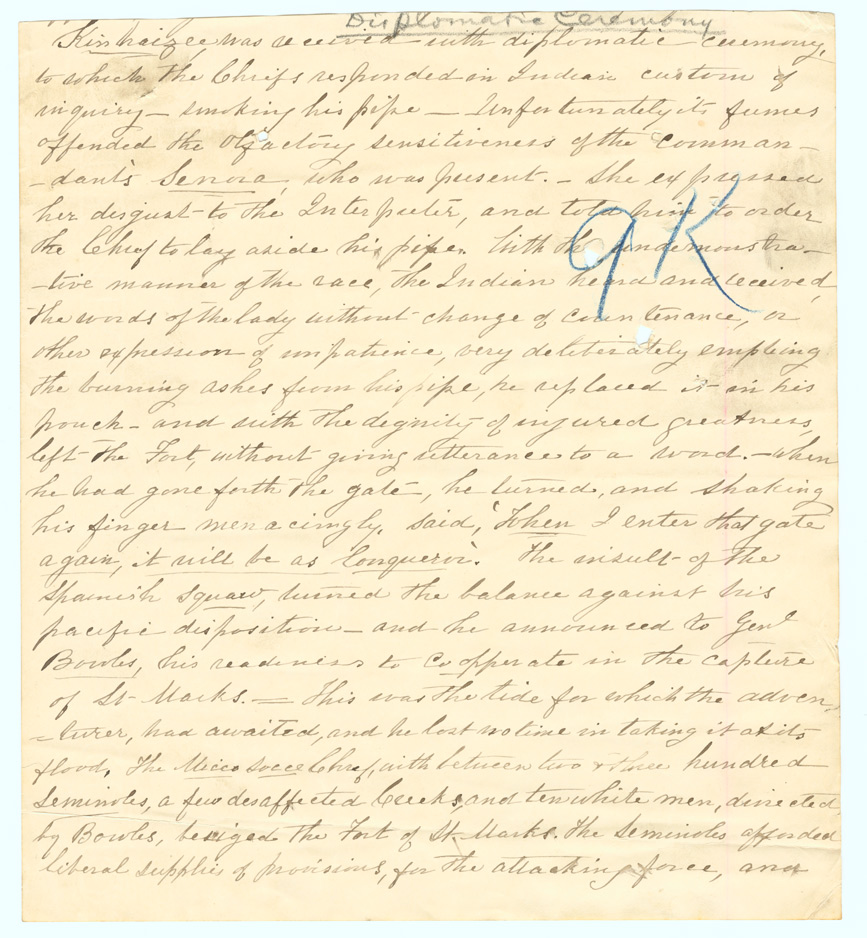 Displomatic Ceremony
Kinhaizee was received with diplomatic ceremony,
to which the Chiefs responded in Indian custom of
inquiry — smoking his pipe — Unfortunately its fumes
offended the Olfactory sensitiveness of the Comman-
-dant's Senora, who was present. — She expressed
her disgust to the Interpreter, and told him to order
the Chief to lay aside his pipe. With the undemonstra-
-tive manner of the race, the Indian heard and received,
the words of the lady without change of countenance, or
other expression of impatience, very deliberately emptying
the burning ashes from his pipe, he replaced it in his
pouch — and with the dignity of injured greatness,
left the Fort, without giving utterance to a word. — when
he had gone forth the gate, he turned, and shaking
his finger menacingly, said, 'When I enter that gate
again, it will be as Conqueror'. The insult of the
Spanish squaw, turned the balance against his
pacific disposition — and he announced to Genl
Bowles, his readiness to Co opperate in the capture
of St Marks. = This was the tide for which the adven-
=turer, had awaited, and he lost no time in taking it at its
flood. The Micco soccee Chief, with between two & three hundred
Seminoles, a few desaffected Creeks, and ten white men, directed
by Bowles, besiged the Fort of St Marks. The Seminoles afforded
liberal supplies of provisions, for the attacking force, and
9K